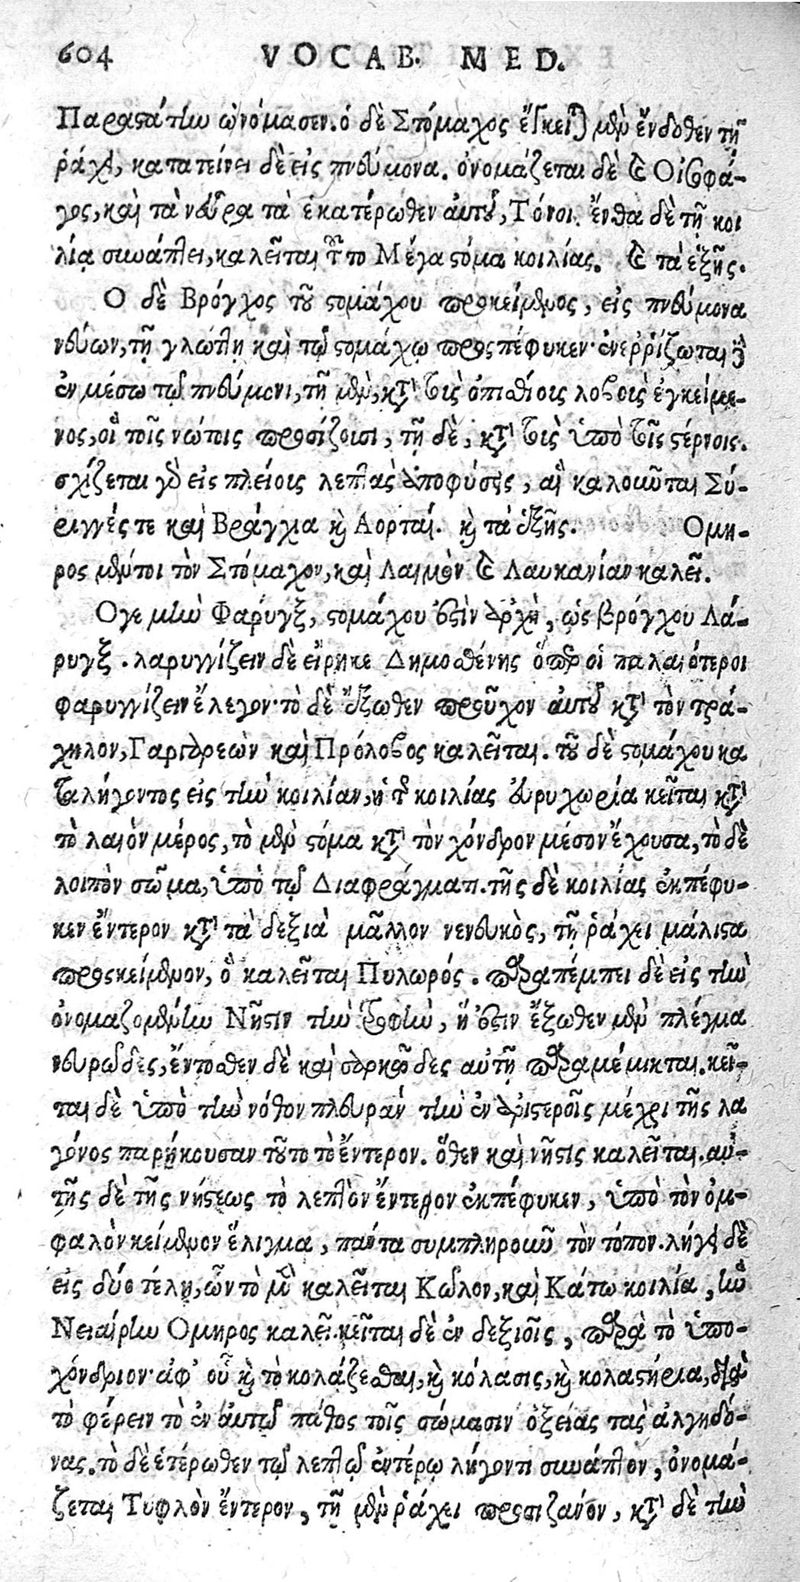 604 VOCAB. MED.
Παραστάτην ὠνόμασεν. ὁ δὲ Στόμαχος ἔγκειται μὲν ἔνδοθεν τῇ
ῥάχει, κατατείνει δὲ εἰς πνεύμονα. ὀνομάζεται δὲ καὶ Οἰσοφά-
γος, καὶ τὰ νεῦρα τὰ ἑκατέρωθεν αὐτοῦ, Τόνοι. ἔνθα δὲ τῇ κοι
λίᾳ συνάπτει, καλεῖται τοῦτο Μέγα στόμα κοιλίας. καὶ τὰ ἑξῆς.
Ο δὲ Βρόγχος τοῦ στομάχου προκείμενος, εἰς πνεύμονα
νεύων, τῇ γλώττῃ καὶ τῷ στομάχῳ προσπέφυκεν· ἐνερρίζωται δὲ
ἐν μέσω τῷ πνεύμονι, τῇ μὲν, κατὰ τοὺς ὀπισθίους λοβοὺς ἐγκείμε-
νος, οἳ τοῖς νώτοις προσίζουσι, τῇ δὲ, κατὰ τοὺς ὑπὸ τοῖς στέρνοις.
σχίζεται γὰρ εἰς πλείους λεπτὰς ἀποφύσεις, αἳ καλοῦνται Σύ-
ριγγές τε καὶ Βράγχια καὶ Αορταί. καὶ τὰ ἑξῆς. Ομη-
ρος μέντοι τὸν Στόμαχον, καὶ Λαιμὸν καὶ Λαυκανίαν καλεῖ.
Ογε μὴν Φάρυγξ, στομάχου ἐστὶν ἀρχὴ, ὡς βρόγχου Λά-
ρυγξ. λαρυγγίζειν δὲ εἴρηκε Δημοσθένης ὅπερ οἱ παλαιότεροι
φαρυγγίζειν ἔλεγον· τὸ δὲ ἔξωθεν προῦχον αὐτοῦ κατὰ τὸν τρά-
χηλον, Γαργαρεὼν καὶ Πρόλοβος καλεῖται. τοῦ δὲ στομάχου κα
ταλήγοντος εἰς τὴν κοιλίαν, ἡ τῆς κοιλίας εὐρυχωρία κεῖται κατὰ
τὸ λαιὸν μέρος, τὸ μὲν στόμα κατὰ τὸν χόνδρον μέσον ἔχουσα, τὸ δὲ
λοιπὸν σῶμα, ὑπὸ τῷ Διαφράγματι. τῆς δὲ κοιλίας ἐκπέφυ-
κεν ἔντερον κατὰ τὰ δεξιὰ μᾶλλον νενευκὸς, τῇ ῥάχει μάλιστα
προσκείμενον, ὃ καλεῖται Πυλωρός. παραπέμπει δὲ εἰς τὴν
ὀνομαζομένην Νῆστιν τὴν τροφὴν, ἥ ἐστιν ἔξωθεν μὲν πλέγμα
νευρῶδες, ἔντοσθεν δὲ καὶ σαρκῶδες αὐτῇ παραμέμικται. κεῖ-
ται δὲ ὑπὸ τὴν νόθον πλευρὰν τὴν ἐν ἀριστεροῖς μέχρι τῆς λα
γόνος παρήκουσαν τοῦτο τὸ ἔντερον. ὅθεν καὶ νῆστις καλεῖται. αὐ-
τῆς δὲ τῆς νήστεως τὸ λεπτὸν ἔντερον ἐκπέφυκεν, ὑπὸ τὸν ὀμ-
φαλὸν κείμενον ἕλιγμα, πάντα συμπληροῦν τὸν τόπον. λήγει δὲ
εἰς δύο τέλη, ὧν τὸ μὲν καλεῖται Κῶλον, καὶ Κάτω κοιλία, ἣν
Νειαίρην Ομηρος καλεῖ. κεῖται δὲ ἐν δεξιοῖς, παρὰ τὸ ὑπο-
χόνδριον· ἀφ' οὗ καὶ τὸ κολάζεσθαι, καὶ κόλασις, καὶ κολαστήρια, διὰ
τὸ φέρειν τὸ ἐν αὐτῷ πάθος τοῖς σώμασιν ὀξείας τὰς ἀλγηδό-
νας. τὸ δὲ ἑτέρωθεν τῷ λεπτῷ ἐντέρῳ λήγοντι συνάπτον, ὀνομά-
ζεται Τυφλὸν ἔντερον, τῇ μὲν ῥάχει προσιζάνον, κατὰ δὲ τὴν